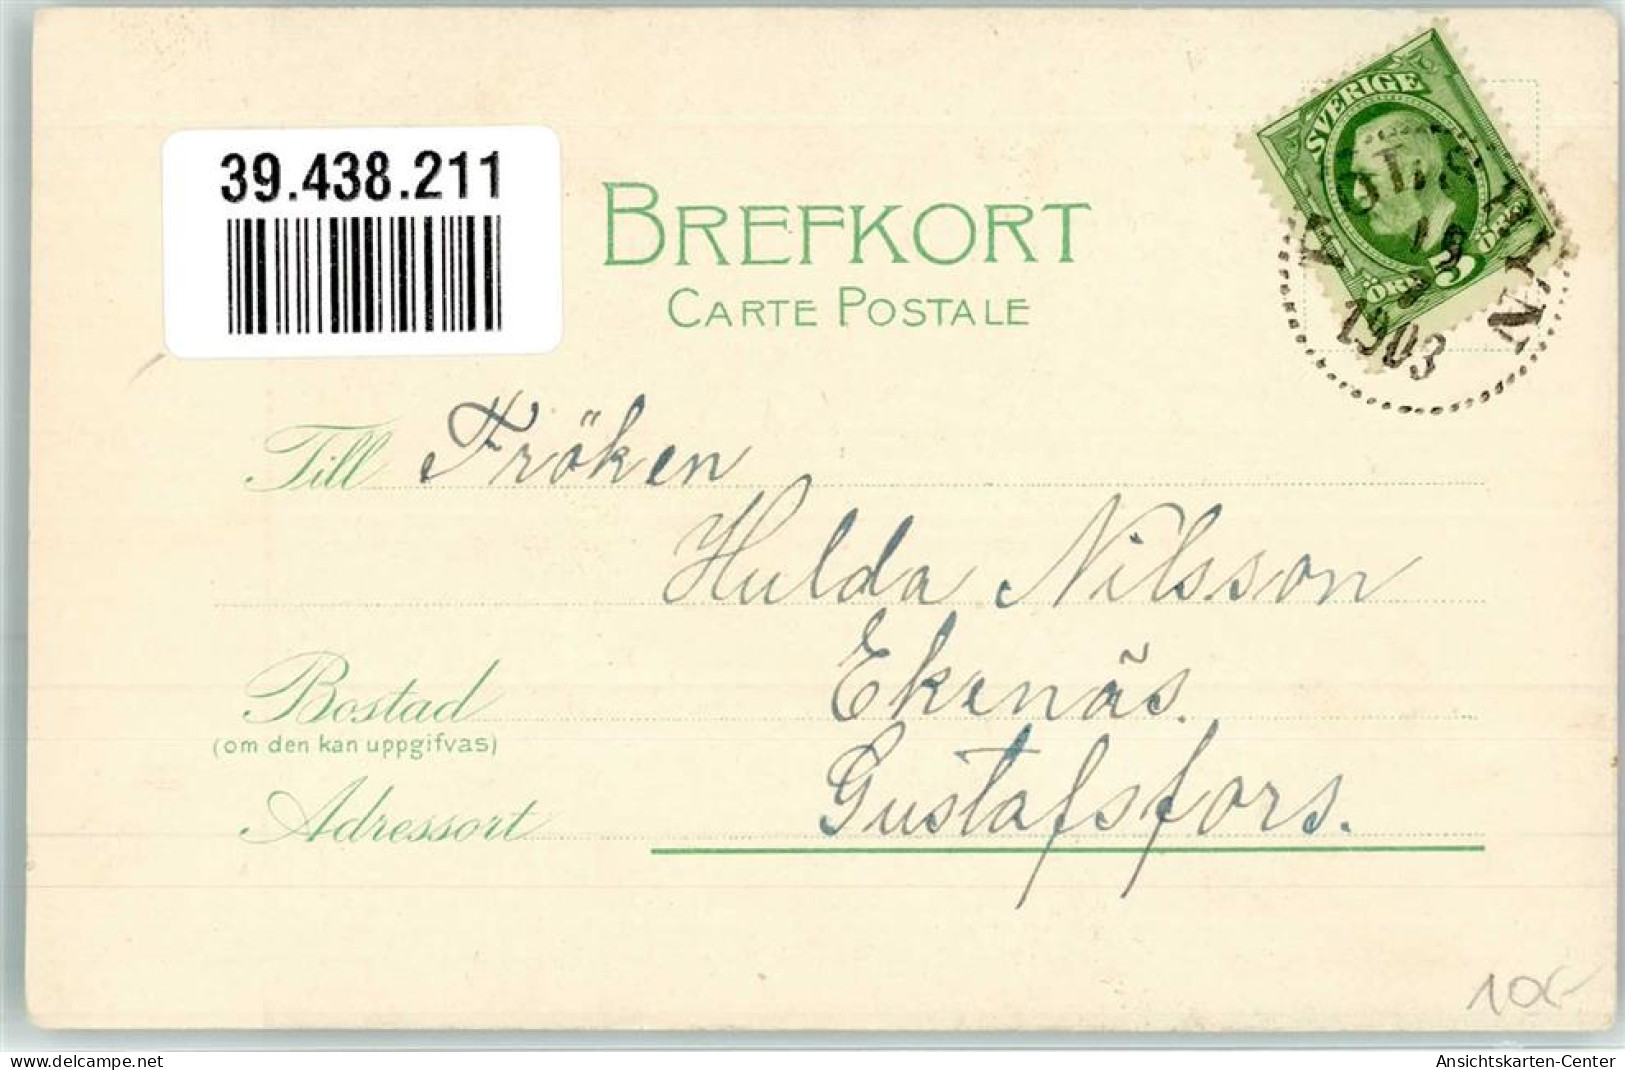 39.438.211
BREFKORT
CARTE POSTALE
SVERIGE
5
ÖRE
ÖRE
1903
Till Fröken
Hulda Nilsson
Bostad Ekenäs.
(om den kan uppgifvas)
Adressort Gustafsfors.
10.-
www.delcampe.net
Ansichtskarten-Center